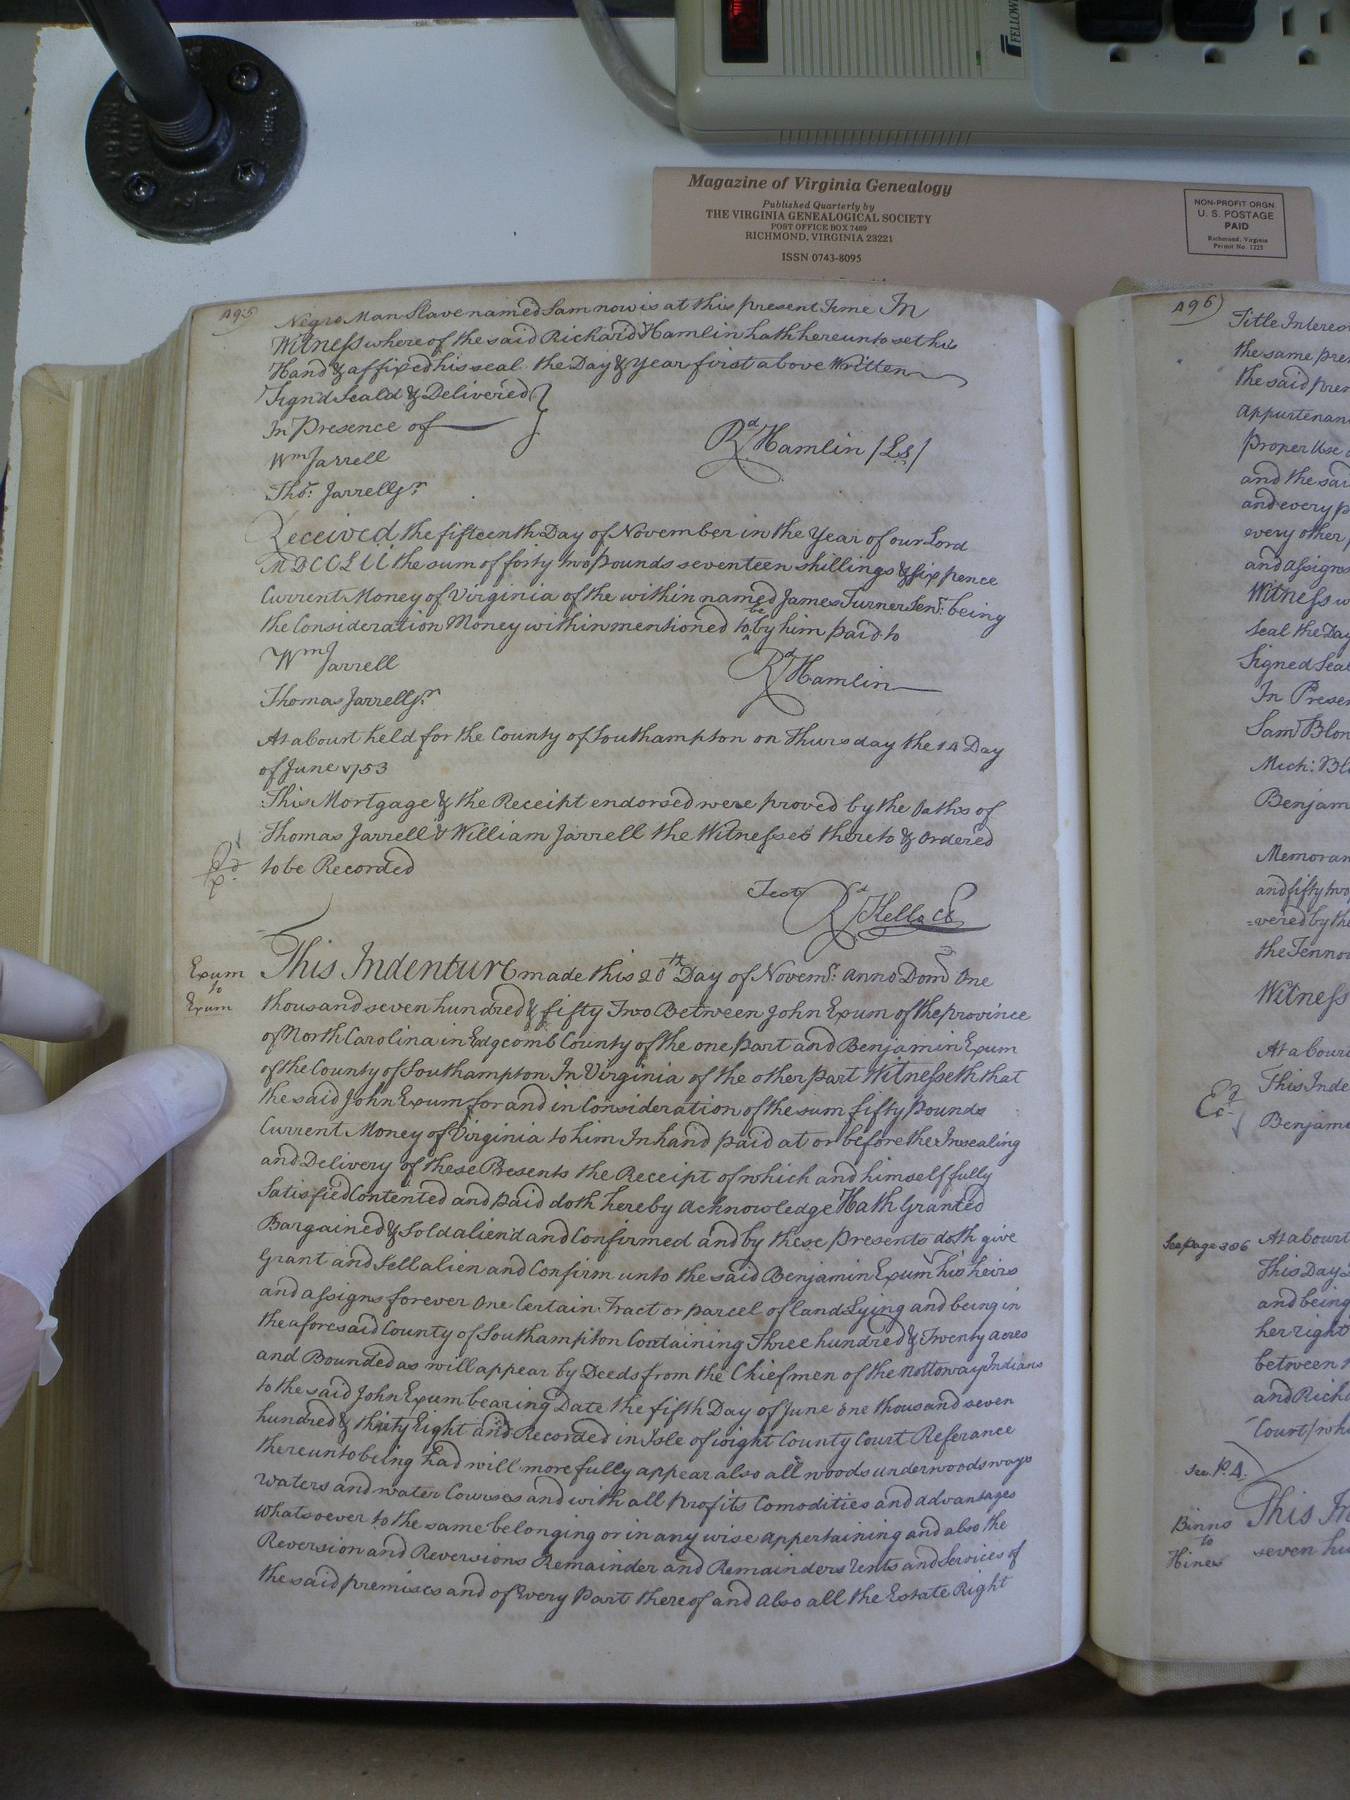 FELLOWE
Magazine of Virginia Genealogy
Published Quarterly by
THE VIRGINIA GENEALOGICAL SOCIETY
POST OFFICE BOX 7469
RICHMOND, VIRGINIA 23221
ISSN 0743-8095
NON-PROFIT ORGN.
U. S. POSTAGE
PAID
Richmond, Virginia
Permit No. 1225
495
Negro Man Slave named Sam now is at this present Time In
Witness where of the said Richard Hamlin hath hereunto set his
Hand & affixed his seal the Day & Year first above Written
Signd Seald & Delivered
In Presence of
Rd Hamlin /Ls/
Wm Jarrell
Thos. Jarrell Jr
Received the fifteenth Day of November in the Year of our Lord
MDCCLII the sum of forty two Pounds seventeen shillings & six pence
Current Money of Virginia of the within named James Turner Senr. being
the Consideration Money within mentioned to be by him paid to
Wm Jarrell
Rd Hamlin
Thomas Jarrell Jr
At a Court held for the County of Southampton on Thursday the 14 Day
of June 1753
This Mortgage & the Receipt endorsed were proved by the Oaths of
Thomas Jarrell & William Jarrell the Witnesses thereto & Ordered
to be Recorded
Test Rd Kello Ck
Exum
to
Exum
This Indenture made this 20th Day of Novemr. Anno Dom One
thousand seven hundred & fifty Two Between John Exum of the province
of North Carolina in Edgcomb County of the one part and Benjamin Exum
of the County of Southampton In Virginia of the other part Witnesseth that
the said John Exum for and in Consideration of the sum fifty Pounds
Current Money of Virginia to him In hand paid at or before the Insealing
and Delivery of these Presents the Receipt of which and himself fully
Satisfied Contented and paid doth hereby acknowledge Hath Granted
Bargained & Sold aliend and Confirmed and by these Presents doth give
Grant and Sell alien and Confirm unto the said Benjamin Exum his heirs
and assigns forever One Certain Tract or parcel of land Lying and being in
the aforesaid County of Southampton Containing Three hundred & Twenty acres
and Bounded as will appear by Deeds from the Chiefmen of the Nottoway Indians
to the said John Exum bearing Date the fifth Day of June one thousand seven
hundred & thirty Eight and Recorded in Isle of wight County Court Referance
thereunto being had will more fully appear also all woods underwoods ways
waters and water Courses and with all profits Comodities and advantages
whatsoever to the same belonging or in any wise appertaining and also the
Reversion and Reversions Remainder and Remainders rents and services of
the said premises and of Every Part thereof and also all the Estate Right
496
Title Interest
the same pre
the said prem
appurtenan
Proper Use
and the sai
and every p
every other
and assigns
Witness w
seal the Day
Signed Seal
In Presen
Sam Blon
Mich: Bl
Benjam
Memoran
and fifty two
=vered by the
the Tennor
Witness
At a Court
This Inde
Benjami
See page 306
At a Court
This Day
and being
her right
between
and Richa
Court/ wh
See P. 4.
Binns
to
Hines
This In
seven hu